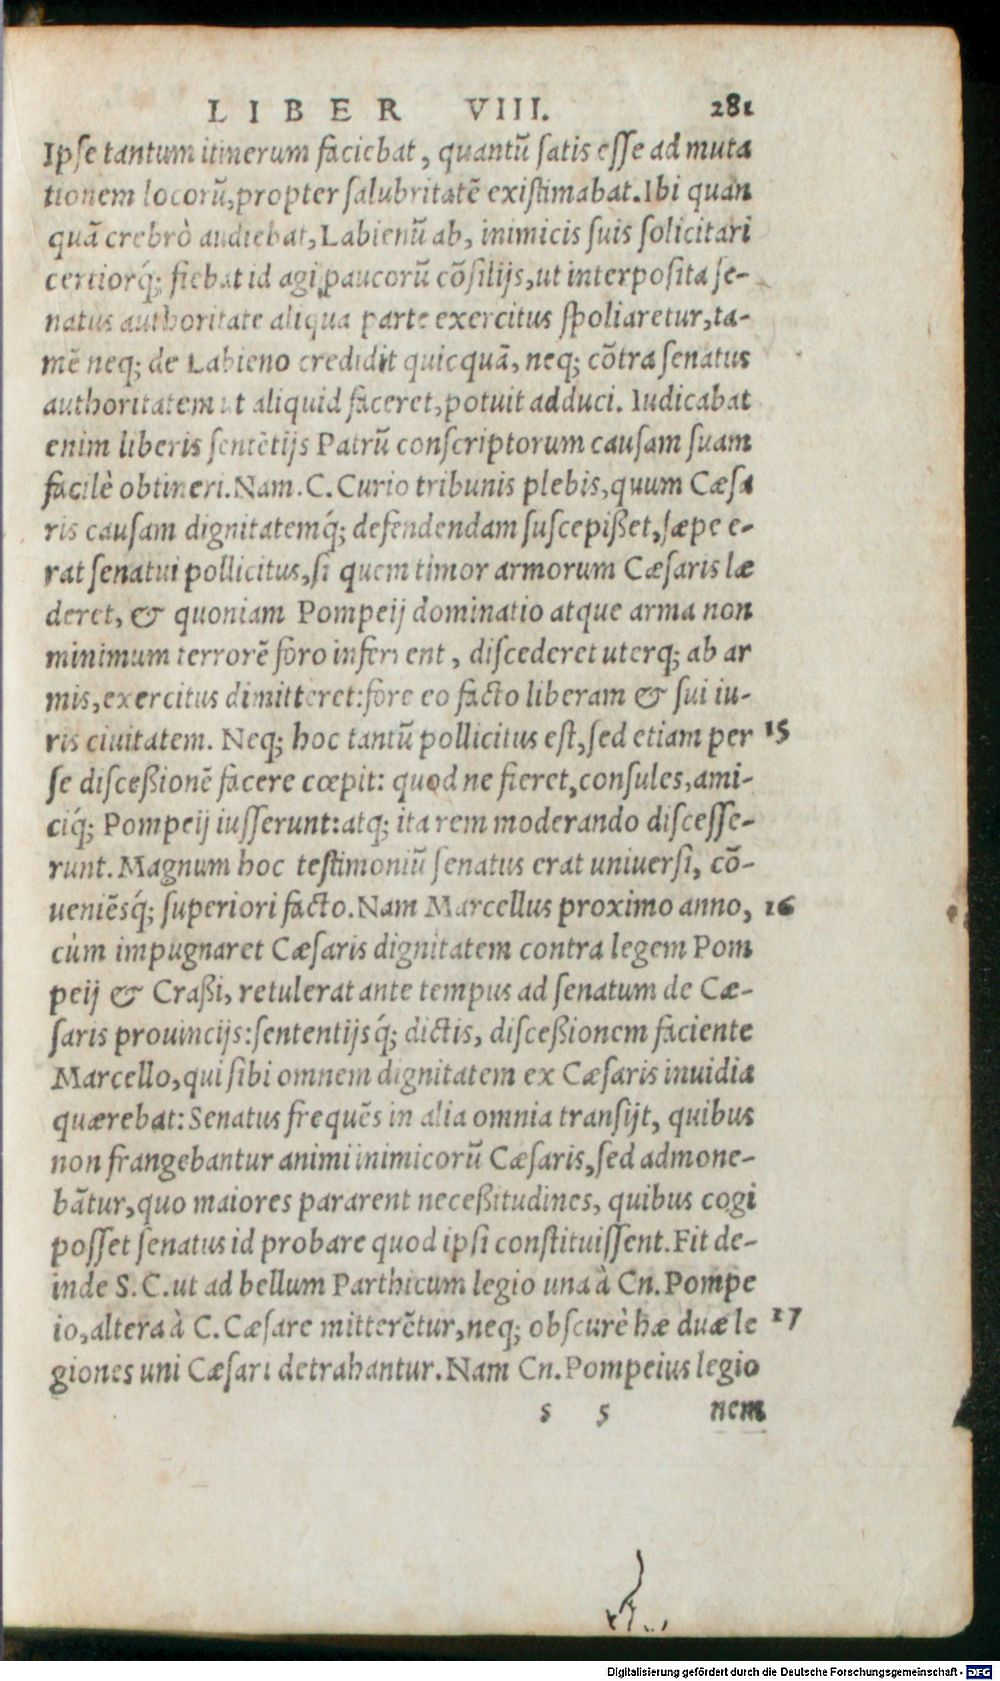 LIBER VIII. 281
Ipse tantum itinerum faciebat, quantũ satis esse ad muta
tionem locorũ, propter salubritatẽ existimabat. Ibi quan
quã crebrò audiebat, Labienũ ab, inimicis suis solicitari
certiorq́; fiebat id agi paucorũ cõsilijs, ut interposita se-
natus authoritate aliqua parte exercitus spoliaretur, ta-
mẽ neq; de Labieno credidit quicquã, neq; cõtra senatus
authoritatem ut aliquid faceret, potuit adduci. Iudicabat
enim liberis sentẽtijs Patrũ conscriptorum causam suam
facilè obtineri. Nam. C. Curio tribunis plebis, quum Cæsa
ris causam dignitatemq́; defendendam suscepißet, sæpe e-
rat senatui pollicitus, si quem timor armorum Cæsaris læ
deret, & quoniam Pompeij dominatio atque arma non
minimum terrorẽ foro inferrent, discederet uterq; ab ar
mis, exercitus dimitteret: fore eo facto liberam & sui iu-
ris ciuitatem. Neq; hoc tantũ pollicitus est, sed etiam per 15
se disceßionẽ facere cœpit: quod ne fieret, consules, ami-
ciq́; Pompeij iusserunt: atq; ita rem moderando discesse-
runt. Magnum hoc testimoniũ senatus erat universi, cõ-
ueniẽsq́; superiori facto. Nam Marcellus proximo anno, 16
cùm impugnaret Cæsaris dignitatem contra legem Pom
peij & Craßi, retulerat ante tempus ad senatum de Cæ-
saris prouincijs: sententijsq́; dictis, disceßionem faciente
Marcello, qui sibi omnem dignitatem ex Cæsaris inuidia
quærebat: Senatus frequẽs in alia omnia transijt, quibus
non frangebantur animi inimicorũ Cæsaris, sed admone-
bãtur, quo maiores pararent neceßitudines, quibus cogi
posset senatus id probare quod ipsi constituissent. Fit de-
inde S. C. ut ad bellum Parthicum legio una à Cn. Pompe
io, altera à C. Cæsare mitterẽtur, neq; obscurè hæ duæ le 17
giones uni Cæsari detrahantur. Nam Cn. Pompeius legio
s s nem
Digitalisierung gefördert durch die Deutsche Forschungsgemeinschaft - DFG